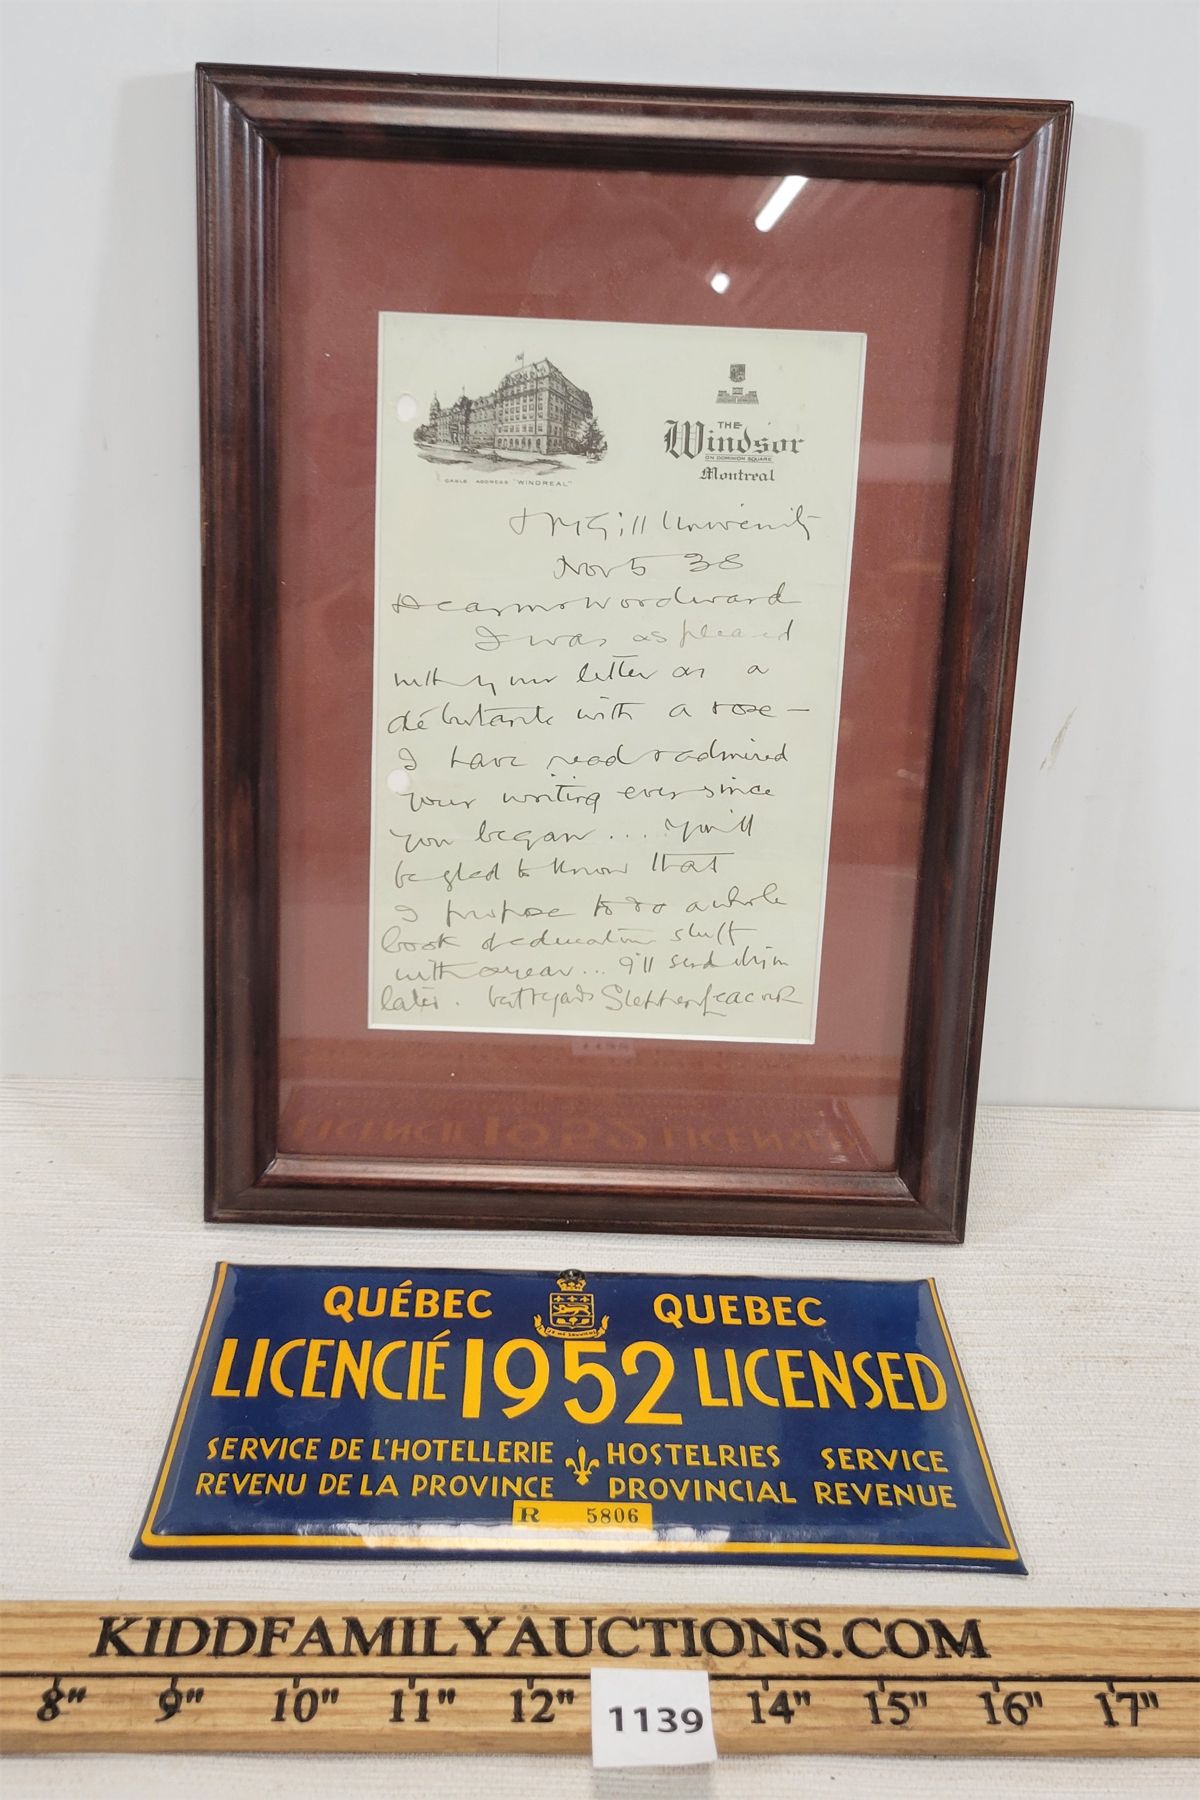 CABLE ADDRESS "WINDREAL"
THE
Windsor
ON DOMINION SQUARE
Montreal
McGill University
Nov 5 38
Dear Mrs Woodward
I was as pleased
with your letter as a
débutante with a rose —
I have read & admired
your writing ever since
you began .... You'll
be glad to know that
I propose to do a whole
book of education stuff
with a year... I'll send
later. best regards Stephen Leacock
LICENCIÉ 1952 LICENSED
QUÉBEC QUEBEC
JE ME SOUVIENS
LICENCIÉ 1952 LICENSED
SERVICE DE L'HOTELLERIE HOSTELRIES SERVICE
REVENU DE LA PROVINCE PROVINCIAL REVENUE
R 5806
KIDDFAMILYAUCTIONS.COM
8" 9" 10" 11" 12" 14" 15" 16" 17"
1139